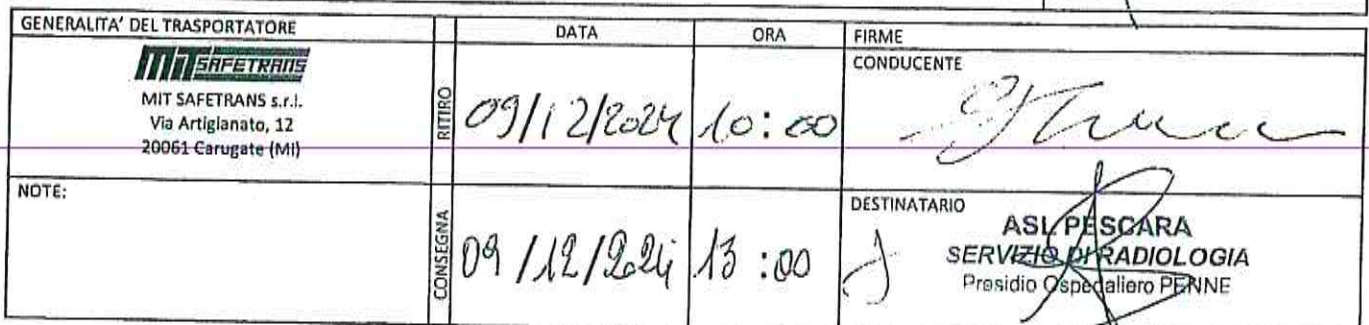 GENERALITA' DEL TRASPORTATORE
DATA
ORA
FIRME
MIT SAFETRANS
MIT SAFETRANS s.r.l.
Via Artigianato, 12
20061 Carugate (MI)
RITIRO
09/12/2024
10:00
CONDUCENTE
NOTE:
CONSEGNA
09/12/2024
13:00
DESTINATARIO
ASL PESCARA
SERVIZIO DI RADIOLOGIA
Presidio Ospedaliero PENNE